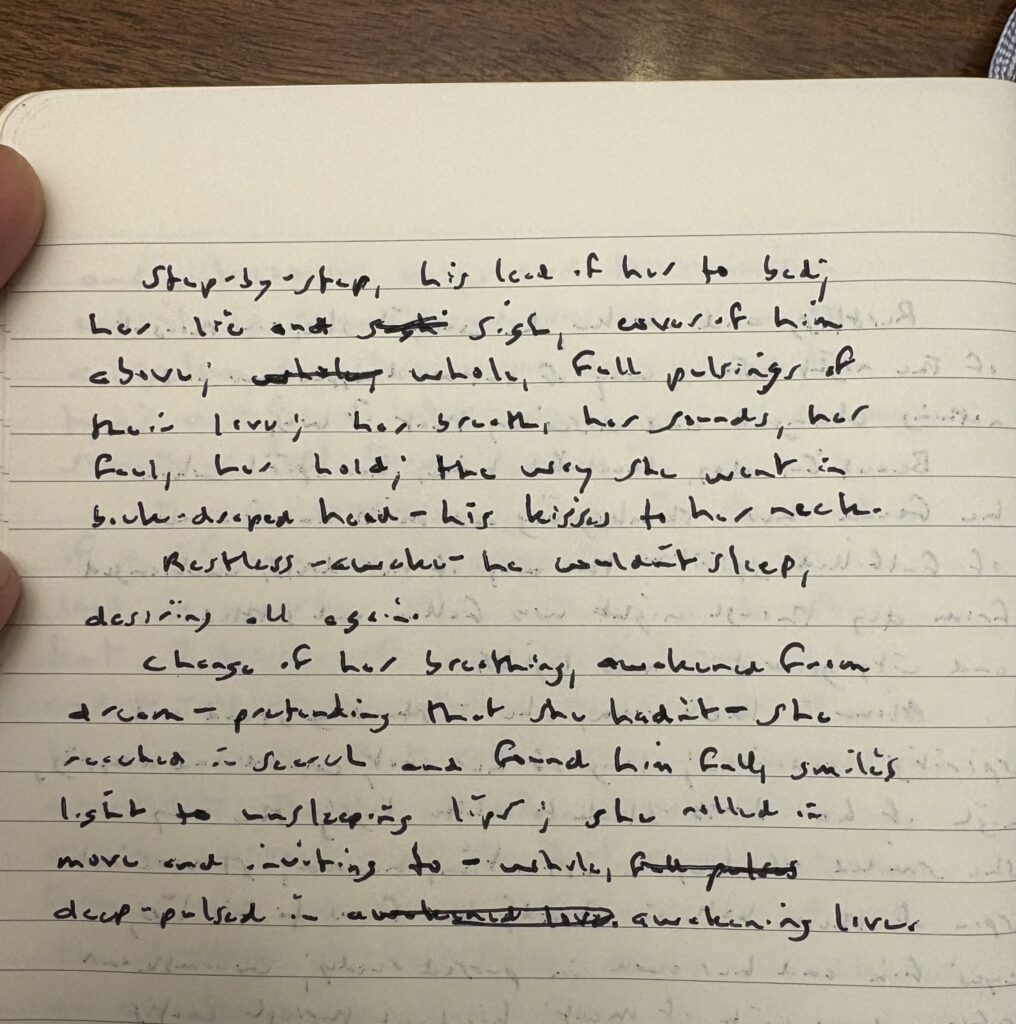 Step-by-step, his lead of her to bed;
her lie and sigh, cover of him
above; whole, full pulsings of
their love; her breath, her sounds, her
feel, her hold; the way she went in
back-draped head - his kisses to her neck.
Restless - awake - he wouldn't sleep,
desiring all again.
Change of her breathing, awakened from
dream - pretending that she hadn't - she
reached in search and found him full, smiles
light to unsleeping lips; she rolled in
move and inviting to - whole, full pulses
deep-pulsed in awakened love. awakening love.